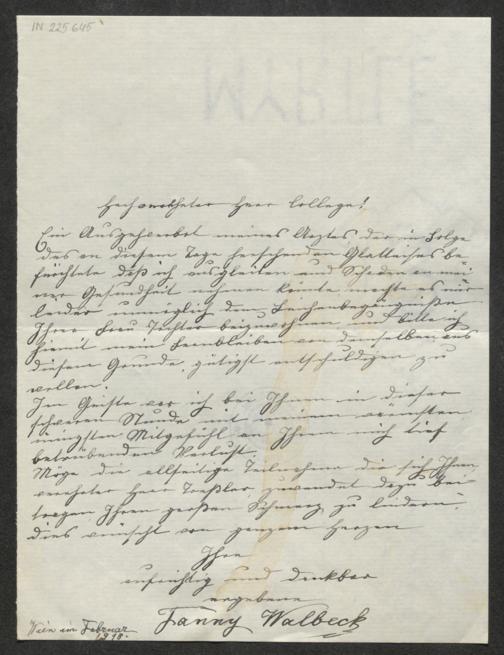 IN 225645
Hochverehrter Herr College!
Ein Ausgehverbot meines Arztes der in Folge
des an diesem Tage herrschenden Glatteises be-
fürchtete daß ich ausgleiten und Schaden an mei-
ner Gesundheit nehmen könnte machte es mir
leider unmöglich dem Leichenbegängniße
Ihrer Frau Tochter beizuwohnen und bitte ich
hiemit mein Fernbleiben von demselben aus
diesem Grunde, gütigst entschuldigen zu
wollen.
Im Geiste war ich bei Ihnen in dieser
schweren Stunde mit meinem
innigsten Mitgefühl an Ihrem mich tief
betrübenden Verlust.
Möge die allseitige Teilnahme die sich Ihnen,
verehrter Herr Treßler, zuwendet dazu bei-
tragen Ihren großen Schmerz zu lindern,
dies wünscht von ganzem Herzen
Ihre
aufrichtig und dankbar
ergebene
Fanny Walbeck
Wien im Februar
1918.